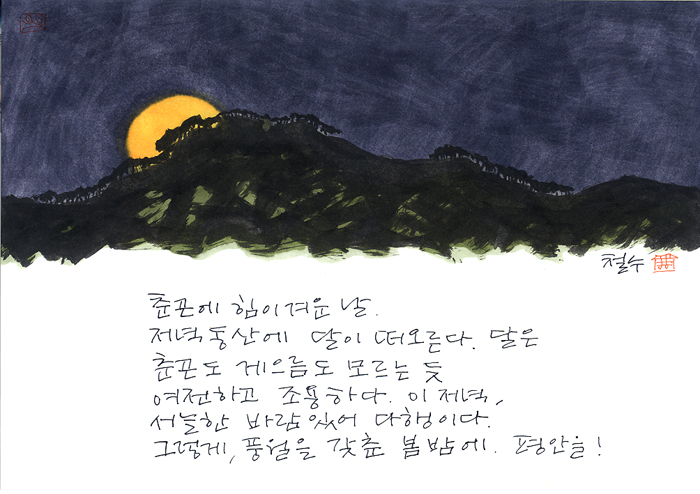 철수
춘곤에 힘이겨운 날.
저녁동산에 달이 떠오른다. 달은
춘곤도 게으름도 모르는 듯
여전하고 조용하다. 이 저녁,
서늘한 바람 있어 다행이다.
그렇게, 풍월을 갖춘 봄밤에. 평안을!